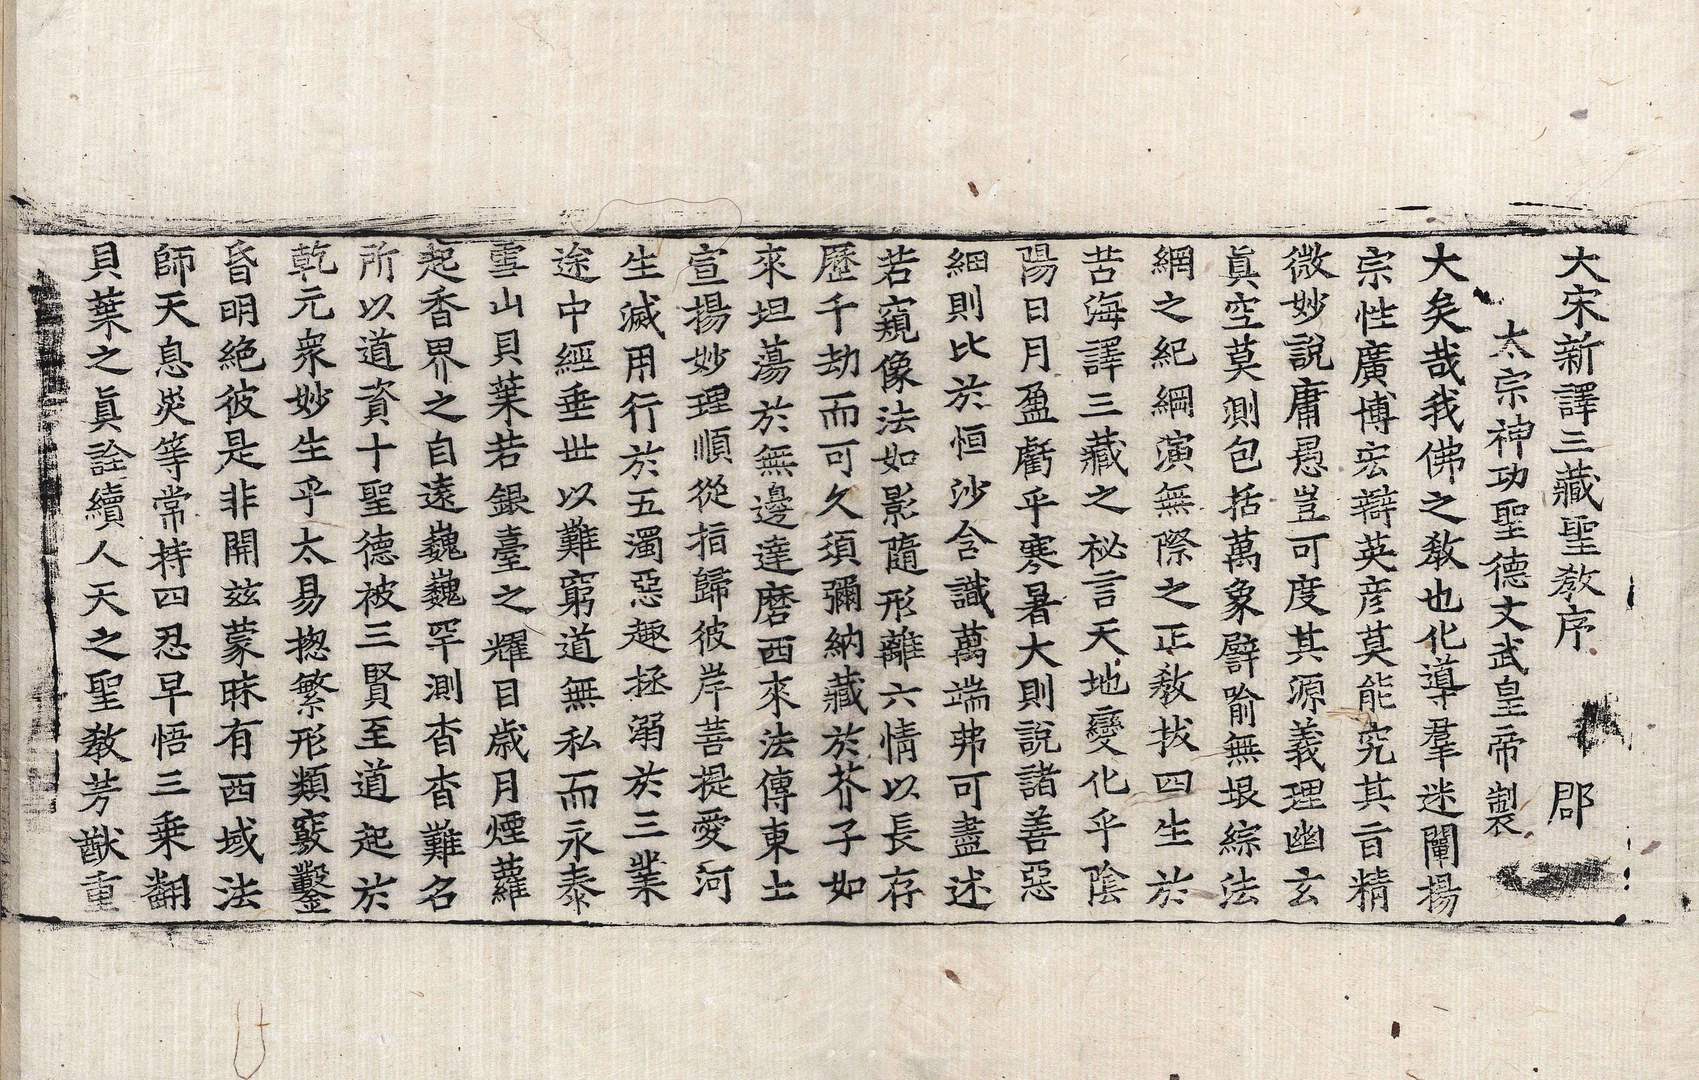 大宋新譯三藏聖教序 郡
太宗神功聖德文武皇帝製
大矣哉我佛之教也化導羣迷闡揚
宗性廣博宏辯英彦莫能究其旨精
微妙說庸愚豈可度其源義理幽玄
眞空莫測包括萬象譬喻無垠綜法
網之紀綱演無際之正教拔四生於
苦海譯三藏之祕言天地變化乎陰
陽日月盈虧乎寒暑大則說諸善惡
細則比於恒沙含識萬端弗可盡述
若窺像法如影隨形離六情以長存
歷千劫而可久須彌納藏於芥子如
來坦蕩於無邊達磨西來法傳東土
宣揚妙理順從指歸彼岸菩提愛河
生滅用行於五濁惡趣拯溺於三業
途中經垂世以難窮道無私而永泰
雪山貝葉若銀臺之耀目歲月煙蘿
起香界之自遠巍巍罕測杳杳難名
所以道資十聖德被三賢至道起於
乾元衆妙生乎太易揔繁形類竅鑿
昏明絶彼是非開兹蒙昧有西域法
師天息災等常持四忍早悟三乘翻
貝葉之眞詮續人天之聖教芳猷重